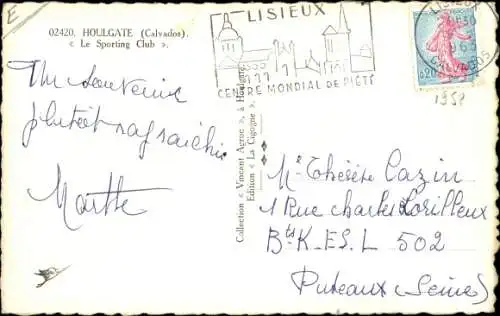 02420. HOULGATE (Calvados).
« Le Sporting Club ».
Un souvenir
plutôt rafraichi
Marthe
Collection « Vincent Agron », à Houlgate
Edition « La Cigogne »
LISIEUX
CENTRE MONDIAL DE PIÉTÉ
LISIEUX
1963
CALVADOS
0,20
1959
Mle Thérèse Cazin
1 Rue charles Lorilleux
Bts K. ES. L 502
Puteaux (Seine)